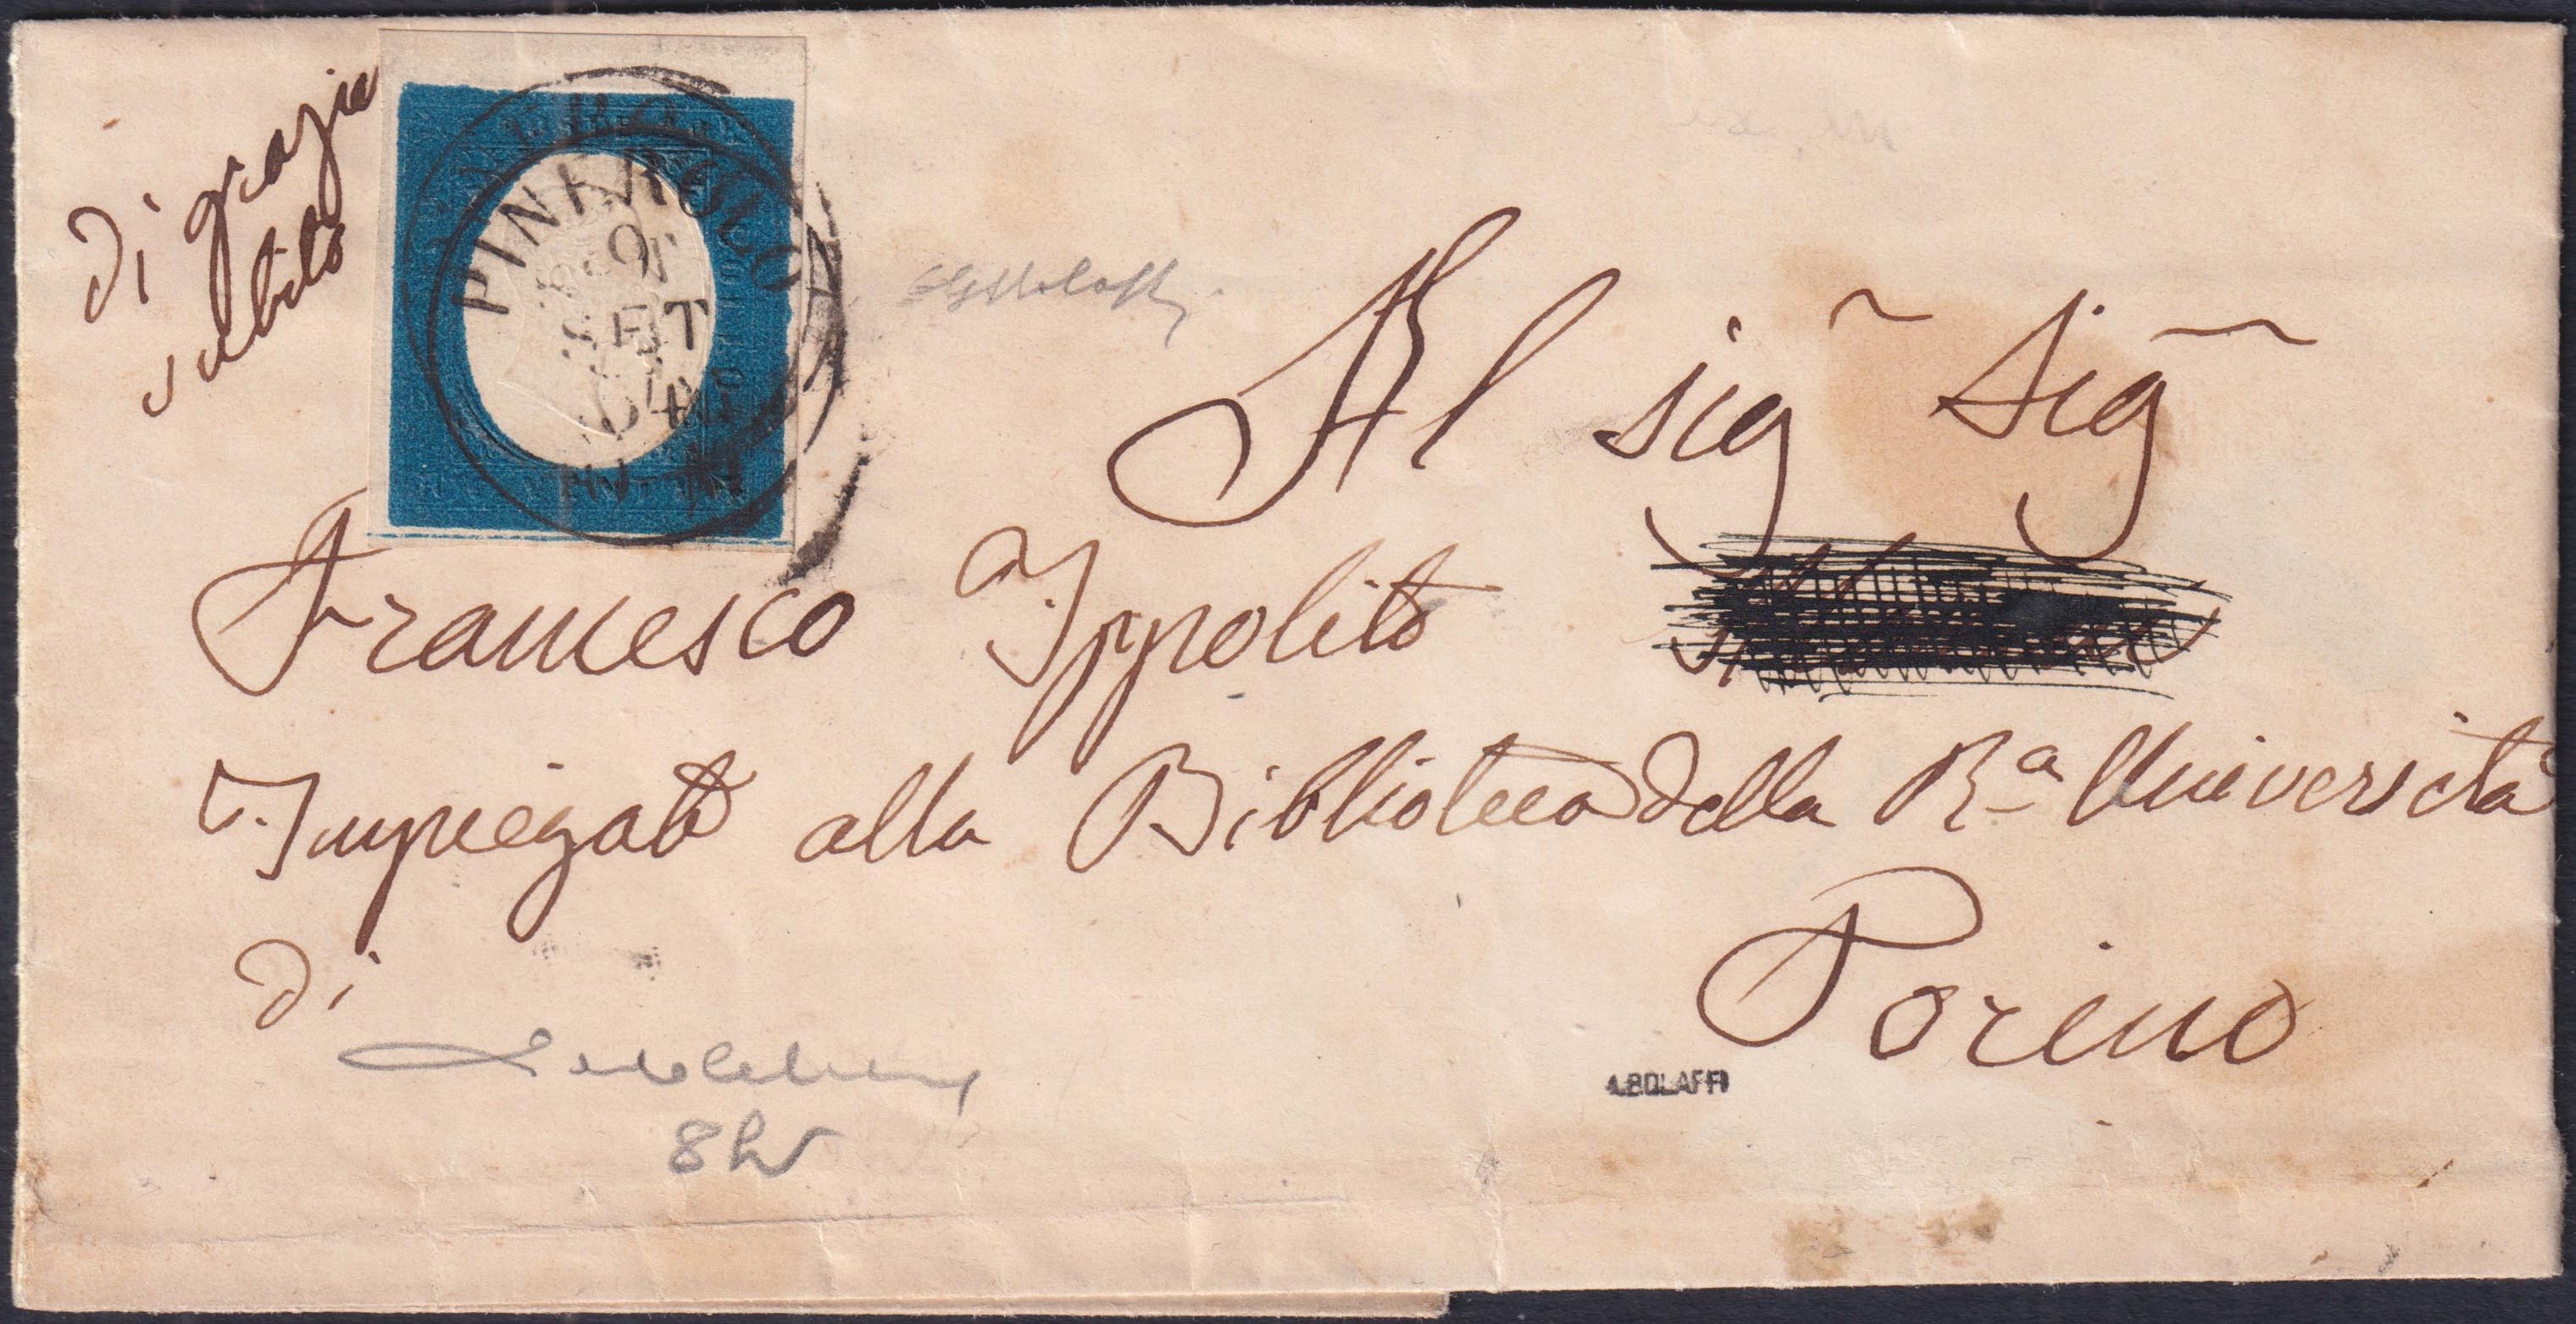 Di grazia
subito
PINEROLO
SET
54
Al sig Sig
Francesco Ippolito
Impiegato alla Biblioteca della Rª Università
di
Torino
A.BOLAFFI